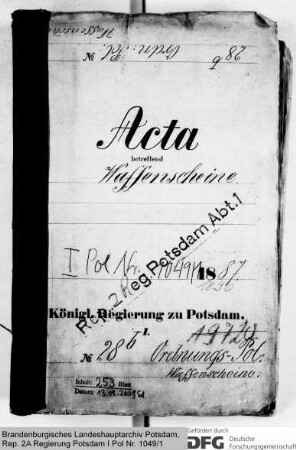 Waffenschein
№ Ordn: Pol:
28b
Acta
betreffend
Waffenscheine
I Pol Nr. 1049/1
1887
1896
Rep. 2 Reg. Potsdam Abt. I
Königl. Regierung zu Potsdam.
I.
№ 28b Ordnungs-Pol.
Waffenscheine.
Inhalt: 253 Blatt
Datum:
Brandenburgisches Landeshauptarchiv Potsdam,
Rep. 2A Regierung Potsdam I Pol Nr. 1049/1
Gefördert durch
DFG Deutsche
Forschungsgemeinschaft